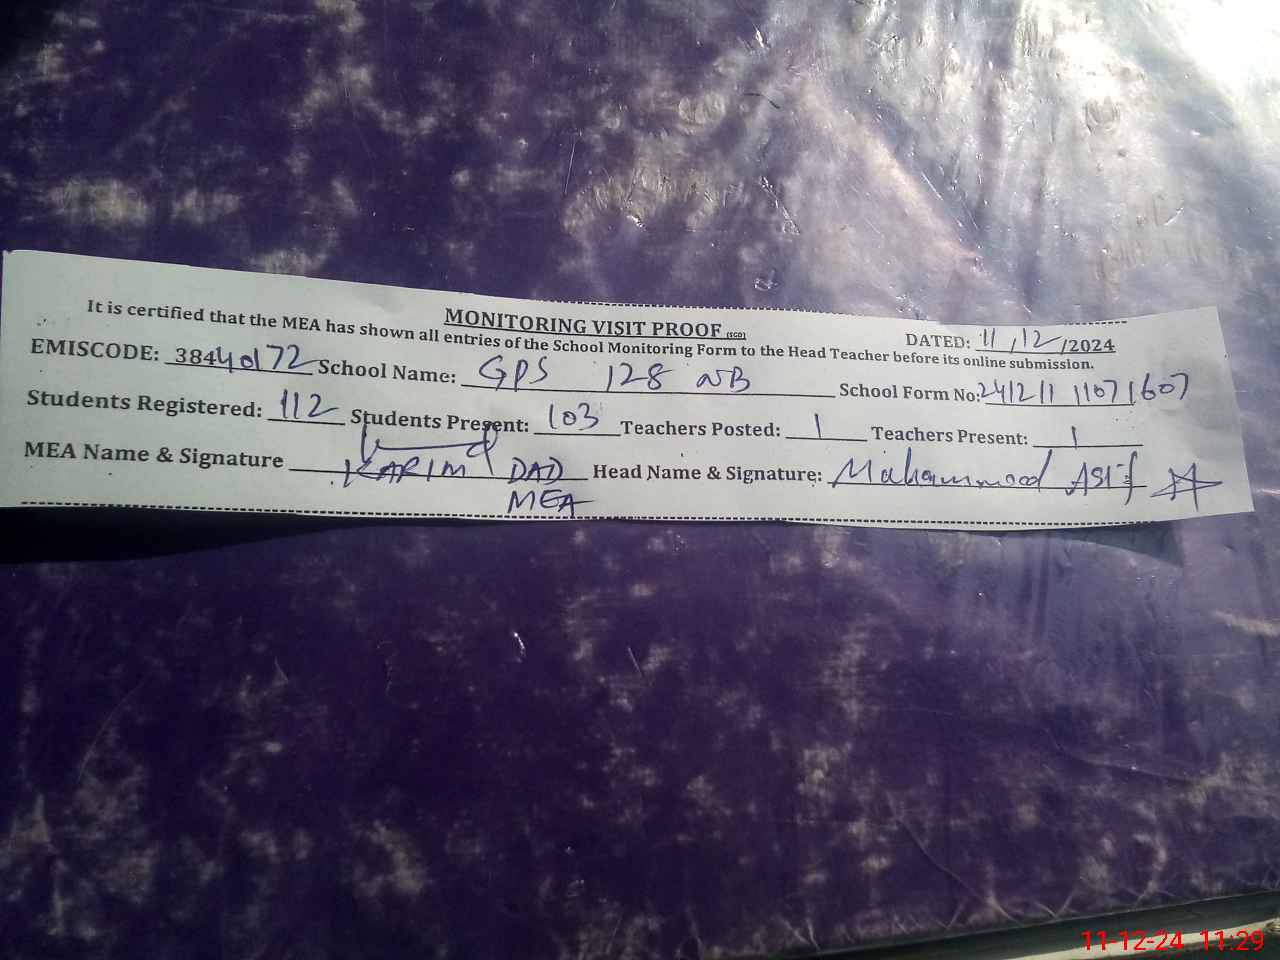 MONITORING VISIT PROOF (SGD)
DATED: 11/12/2024
It is certified that the MEA has shown all entries of the School Monitoring Form to the Head Teacher before its online submission.
EMISCODE: 38440172 School Name: GPS 128 NB School Form No: 241211 1107 1607
Students Registered: 112 Students Present: 103 Teachers Posted: 1 Teachers Present: 1
MEA Name & Signature KARIM DAD Head Name & Signature: Muhammad Asif
MEA
11-12-24 11:29